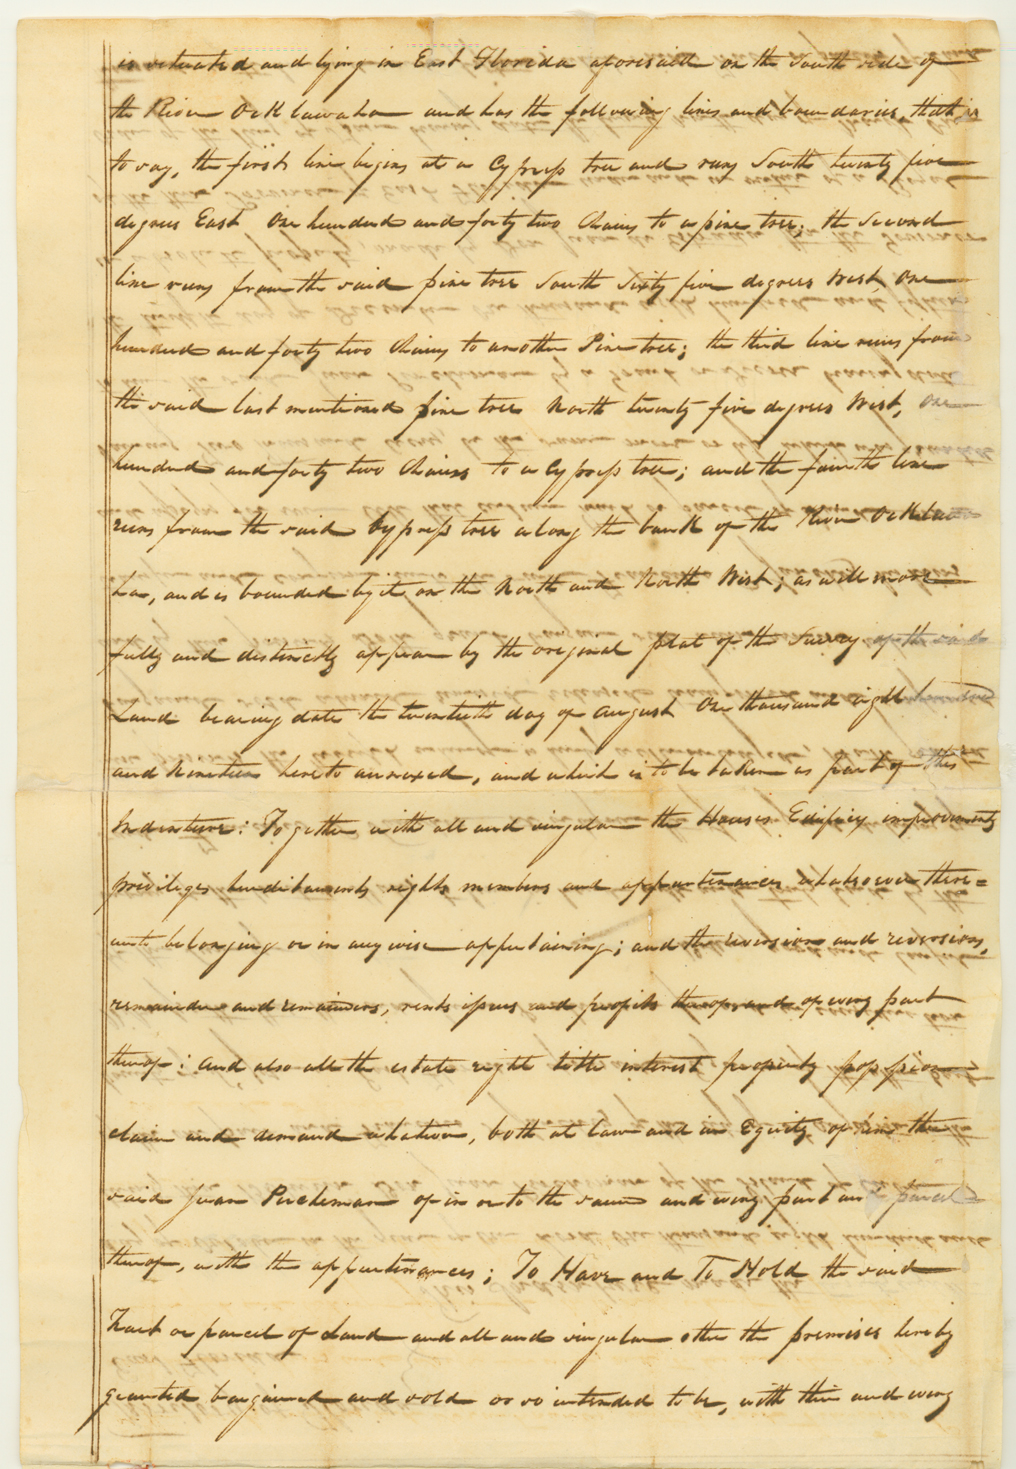 is situated and lying in East Florida aforesaid on the South side of
the River Ocklawaha and has the following lines and boundaries, that is
to say, the first line begins at a Cypress tree and runs South twenty five
degrees East One hundred and forty two Chains to a pine tree; the Second
line runs from the said pine tree South Sixty five degrees West, One
hundred and forty two Chains to another Pine tree; the third line runs from
the said last mentioned pine tree North twenty five degrees West, One
hundred and forty two Chains to a Cypress tree; and the fourth line
runs from the said Cypress tree along the bank of the River Ocklawa
ha, and is bounded by it on the North and North West; as will more
fully and distinctly appear by the original plat of the Survey of the said
Land bearing date the twentieth day of August One thousand eight hundred
and Nineteen hereto annexed, and which is to be taken as part of this
Indenture: Together with all and singular the Houses Edificies improvements
privileges hereditaments rights members and appurtenances whatsoever there=
unto belonging or in any wise appertaining; and the reversion and reversions,
remainder and remainders, rents issues and profits thereof and of every part
thereof: And also all the estate right title interest property possession
claim and demand whatever, both at law and in Equity of him the
said Juan Percheman of in or to the same and every part and parcel
thereof, with the appurtenances; To Have and To Hold the said
Tract or parcel of Land and all and singular other the premises hereby
granted bargained and sold or so intended to be, with their and every